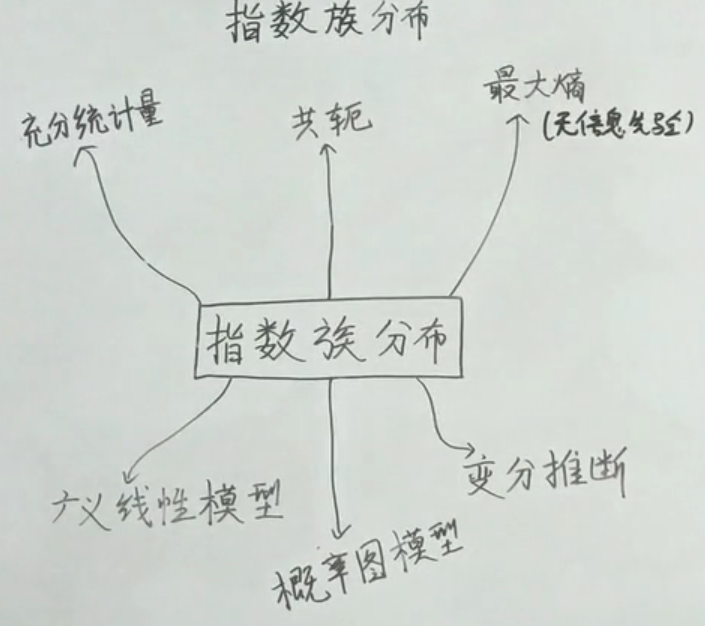 指数族分布
充分统计量
共轭
最大熵
(无信息先验)
指数族分布
广义线性模型
概率图模型
变分推断